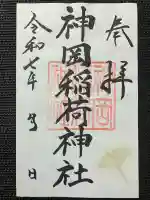 奉拝
神岡稲荷神社
令和七年 月 日